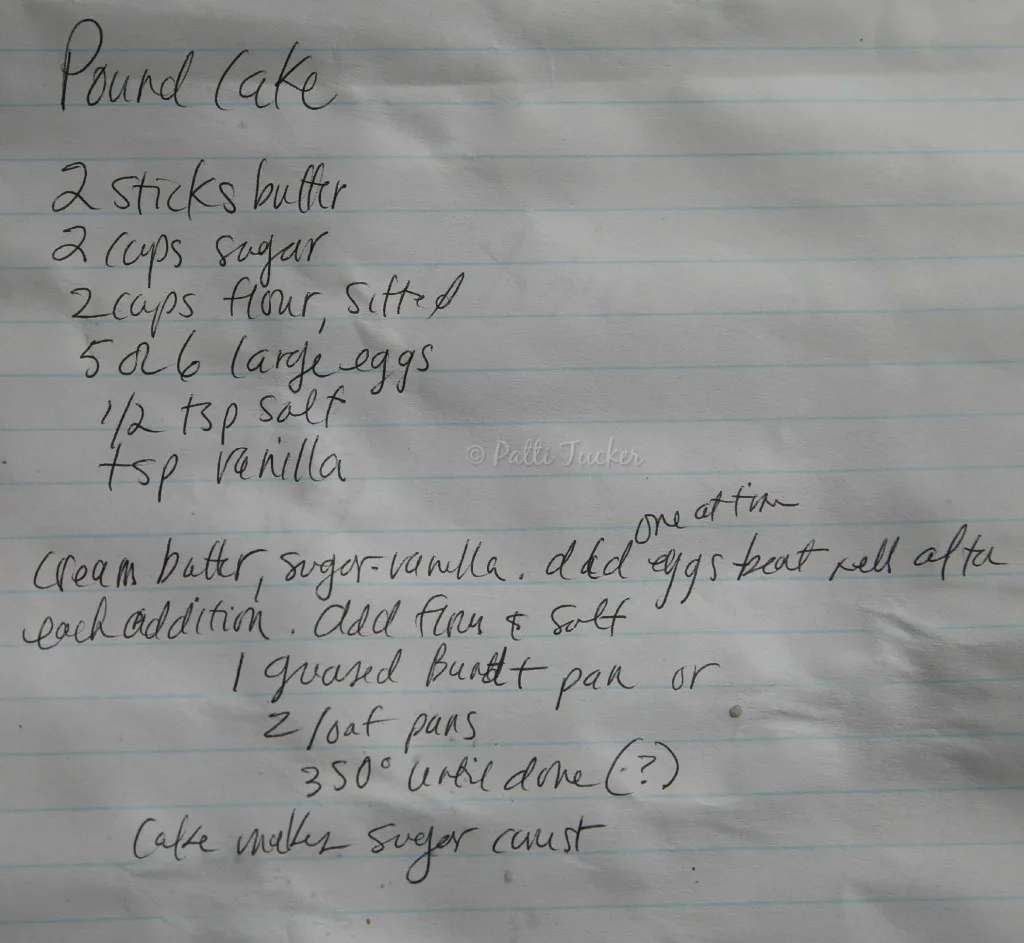 Pound Cake
2 sticks butter
2 cups sugar
2 cups flour, sifted
5 or 6 large eggs
1/2 tsp salt
tsp vanilla
© Patti Tucker
one at time
Cream butter, sugar-vanilla. Add eggs beat well after
each addition. Add flour & salt
1 greased Bundt pan or
2 loaf pans
350° until done (?)
Cake makes sugar crust